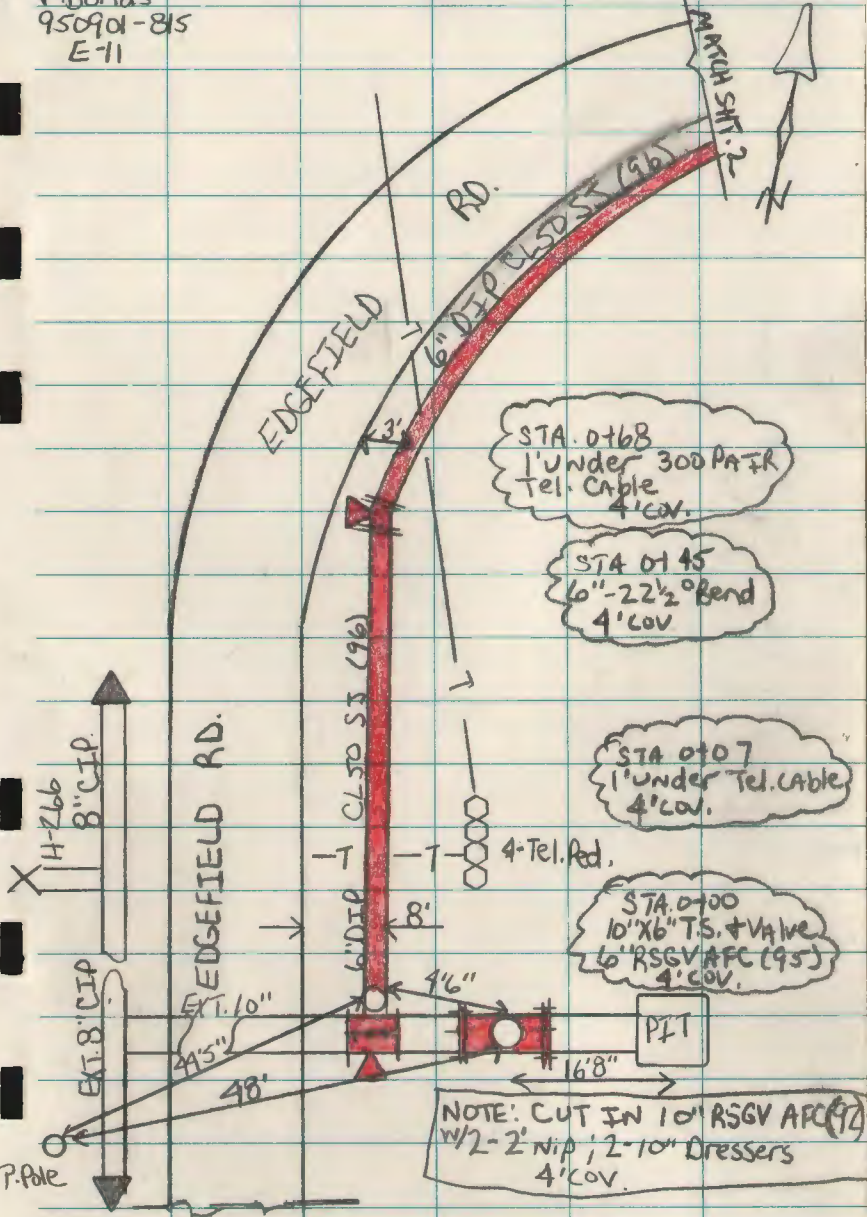 950901-815
E-11
MATCH SHT. 2
N
RD.
6" DIP CL50 SJ (96)
EDGEFIELD
T
3'
STA. 0+68
1' Under 300 PAIR
Tel. CAble
4' COV.
STA 0+45
6"-22½° Bend
4' COV
T
6" DIP CL50 SJ (96)
EDGEFIELD RD.
H-266
8" CIP
STA 0+07
1' Under Tel. CAble
4' COV.
-T -T-
4-Tel. Ped.
8'
STA. 0+00
10"X6" T.S. + VAlve
6" RSGV AFC (95)
4' COV.
4'6"
EXT. 10"
EXT. 8" CIP
44'5"
PIT
48'
16'8"
NOTE: CUT IN 10" RSGV AFC (92)
W/2-2' Nip; 2-10" Dressers
4' COV.
P. Pole